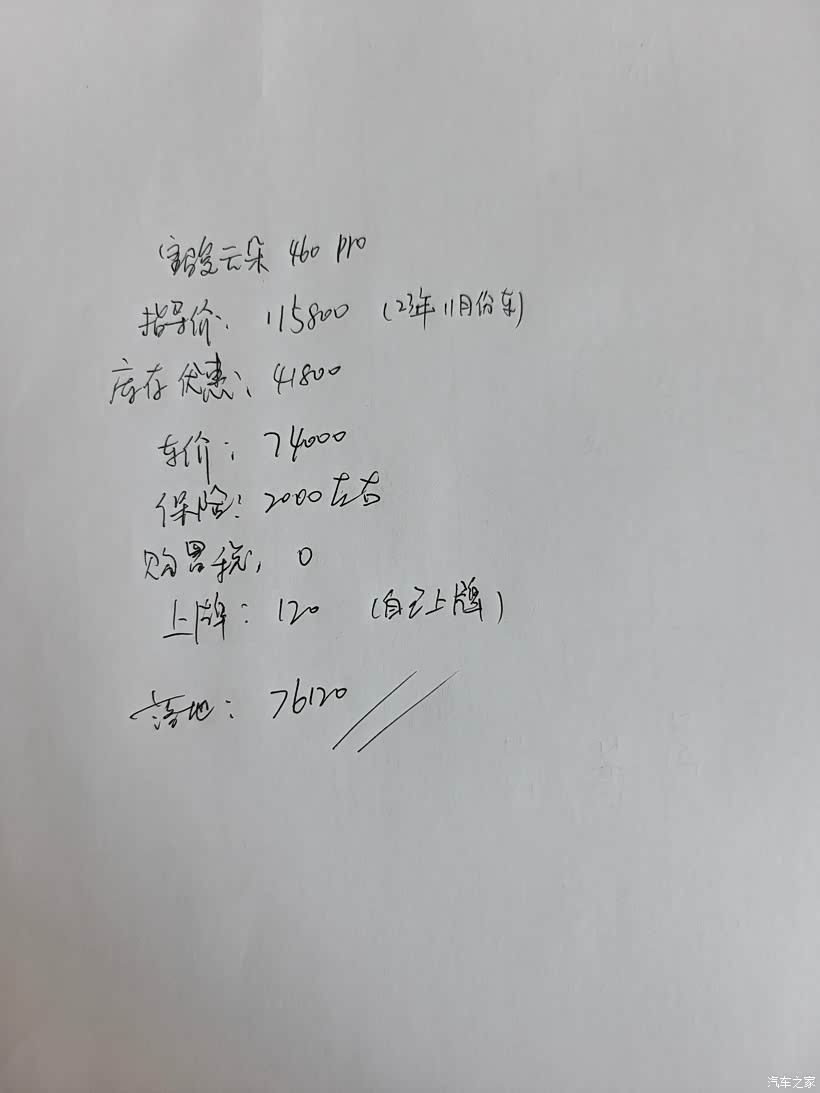 宝骏云朵 460 pro
指导价: 115800 (23年11月份车)
库存优惠: 41800
车价: 74000
保险: 2000左右
购置税: 0
上牌: 120 (自己上牌)
落地: 76120
汽车之家